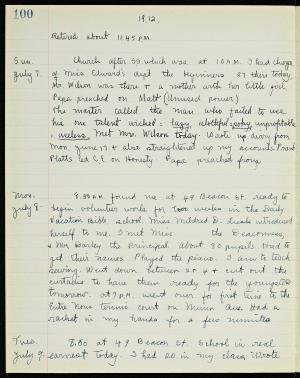 100
1912.
Retired about 11:45 P.M.
Sun. Church after SS which was at 10 A.M. I had charge
July 7. of Miss Edward's dept the beginners 27 there today.
Mr. Wilson was there & a mother with her little girl
Papa preached on Matt (Unused power)
The master called the man who failed to use
his one talent wicked: lazy, slothful, unprofitable
, useless. Met Mrs. Wilson today. Wrote up diary from
Mon. June 17. & also straightened up my accounts.
Platts led C.E. on Honesty. Papa preached
Mon. 8:55 A.M. found me at 49 Beacon St. ready to
July 8. begin volunteer work for two weeks in the Daily
Vacation Bible school. Miss Mildred D. introduced
herself to me. I met Miss the Deaconess,
& Mr. Darley the Principal about 80 pupils. Had to
get their names. Played the piano. I am to teach
sewing. Went down between 2 & 4 & cut out the
curtains to have them ready for the youngsters
tomorrow. at 7 P.M. went over for first time to the
Entre Nous tennis court on Ave. Had a
racket in my hands for a few minutes
Tues. 8:50 at 49 Beacon St. School in real
July 9. earnest today. I had 20 in my class. Wrote